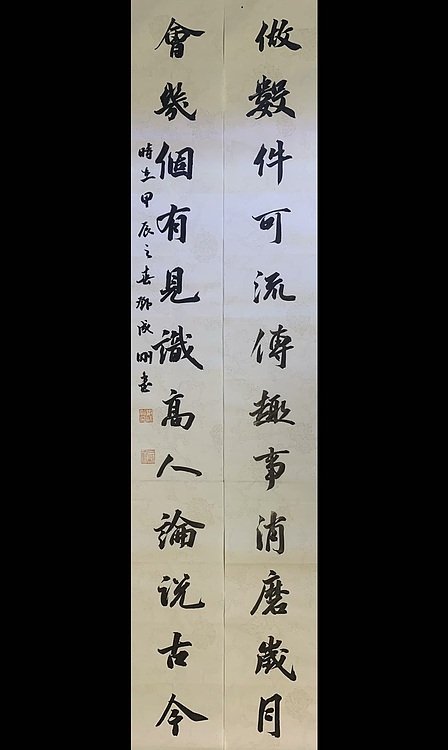 做數件可流傳趣事消磨歲月
會幾個有見識高人論説古今
時在甲辰之春鄧成明書